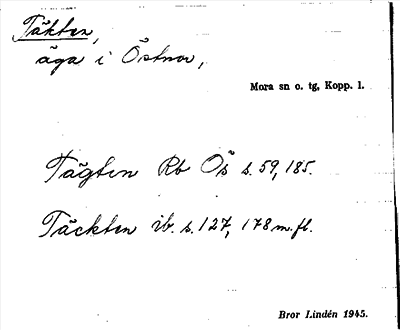 Täkten,
äga i Östnor,
Mora sn o. tg, Kopp. l.
Tägten Rb Ös s. 59, 185.
Täckten ib. s. 127, 178 m. fl.
Bror Lindén 1945.